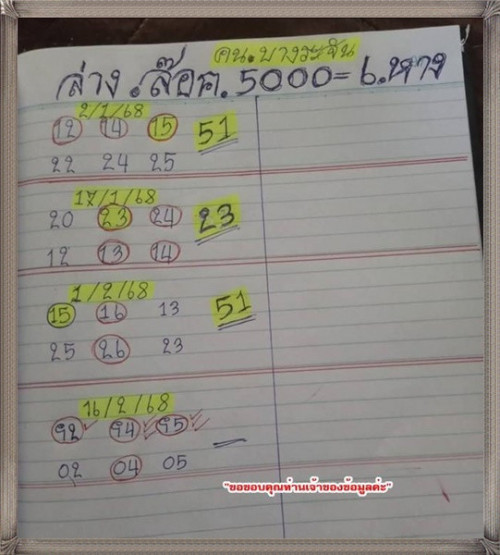 คน.บางระจัน
ล่าง.ล๊อค.5000=6.ทาง
2/1/68
12 14 15 51
22 24 25
17/1/68
20 23 24 23
12 13 14
1/2/68
15 16 13 51
25 26 23
16/2/68
92 94 95
02 04 05
"ขอขอบคุณท่านเจ้าของข้อมูลค่ะ"